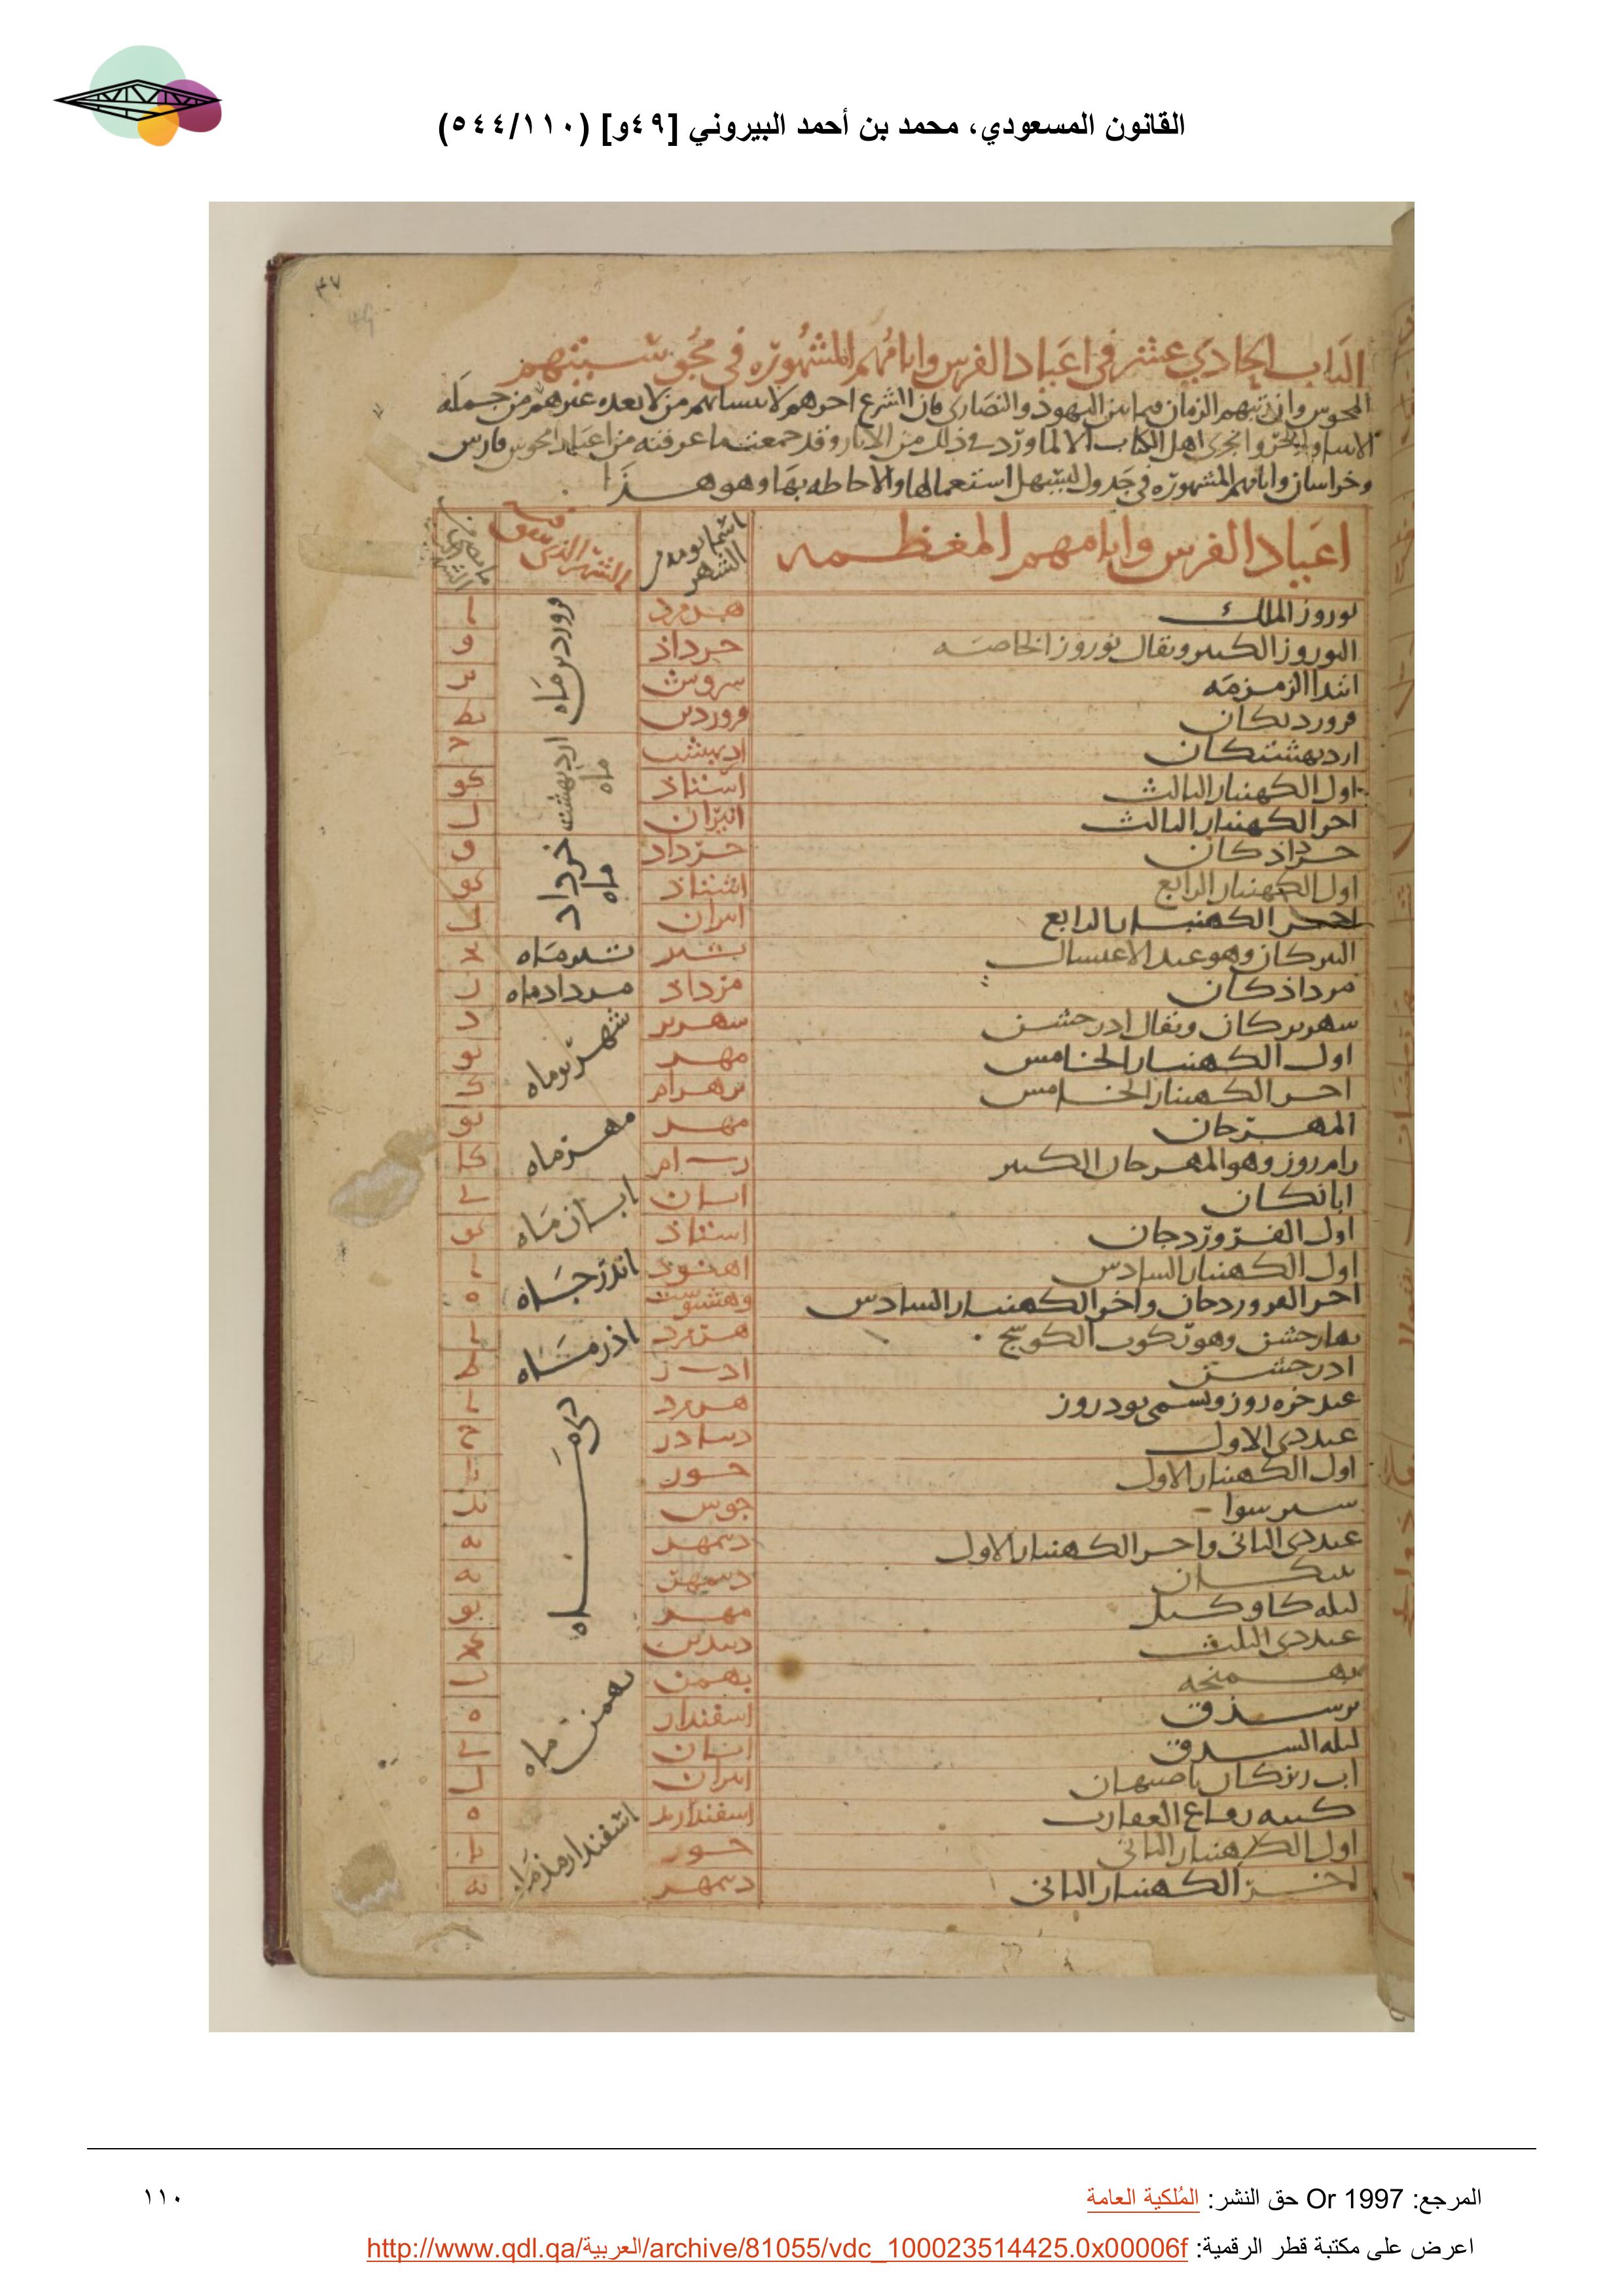 القانون المسعودي، محمد بن أحمد البيروني [٤٩و] (٥٤٤/١١٠)
٤٧
49
الباب الحادي عشر في اعياد الفرس وايامهم المشهوره في مجوسيتهم
المجوس وان تبهم الزمان فيما بين اليهود والنصارى فان الشرع احرهم لا من جمله
اهل الكتاب الا لما ورد في ذلك من الاثار وقد جمعت ما عرفته من اعياد مجوس فارس
وخراسان وايامهم المشهوره في جدول ليسهل استعمالها والاحاطه بها وهو هذا
اعياد الفرس وايامهم المعظمه اسما يومه من الشهر
نوروز الملك هرمزد فروردين ماه ا
النوروز الكبير ويقال نوروز الخاصه خرداذ و
ابتدا الزمزمه سروش يز
فرورديكان فروردين يط
ارديهشتكان ارديهشت ارديهشت ماه ج
اول الكهنبار الثالث اشتاذ كو
اخر الكهنبار الثالث انيران ل
خرداذكان خرداد خرداد ماه و
اول الكهنبار الرابع اشتاذ كو
اخر الكهنبار الرابع انيران ل
التيركان وهو عيد الاغتسال تير تيرماه يج
مرداذكان مرداذ مردادماه ز
شهريركان ويقال اذرجشن شهرير شهريرماه د
اول الكهنبار الخامس مهر يو
اخر الكهنبار الخامس بهرام ك
المهرجان مهر مهرماه يو
رام روز وهو المهرجان الكبير رام كا
ابانكان ابان ابان ماه ي
اول الفروردجان اشتاذ كو
اول الكهنبار السادس اهنود اندرجاه ا
اخر الفروردجان واخر الكهنبار السادس وهشتوشت ه
بهارجشن وهو ركوب الكوسج هرمزد اذرماه ا
اذرجشن اذر ط
عيد خره روز ويسمى نود روز هرمزد ديماه ا
عيد دى الاول ديباذر ح
اول الكهنبار الاول خور يا
سيرسوا جوش يد
عيد دى الثانى واخر الكهنبار الاول ديمهر يه
ديمهر يه
ليله كاوكيل مهر يو
عيد دى الثلث ديبدين كج
بهمنجه بهمن بهمن ماه ب
برسذق اسفندار ه
ليله السذق ابان ي
اب ريزكان باصبهان انيران ل
كتبه رقاع العقارب اسفندارمذ اسفندارمذماه ه
اول الكهنبار الثانى خور يا
اخر الكهنبار الثانى ديمهر يه
المرجع: Or 1997 حق النشر: المُلكية العامة
١١٠
اعرض على مكتبة قطر الرقمية: http://www.qdl.qa/العربية/archive/81055/vdc_100023514425.0x00006f